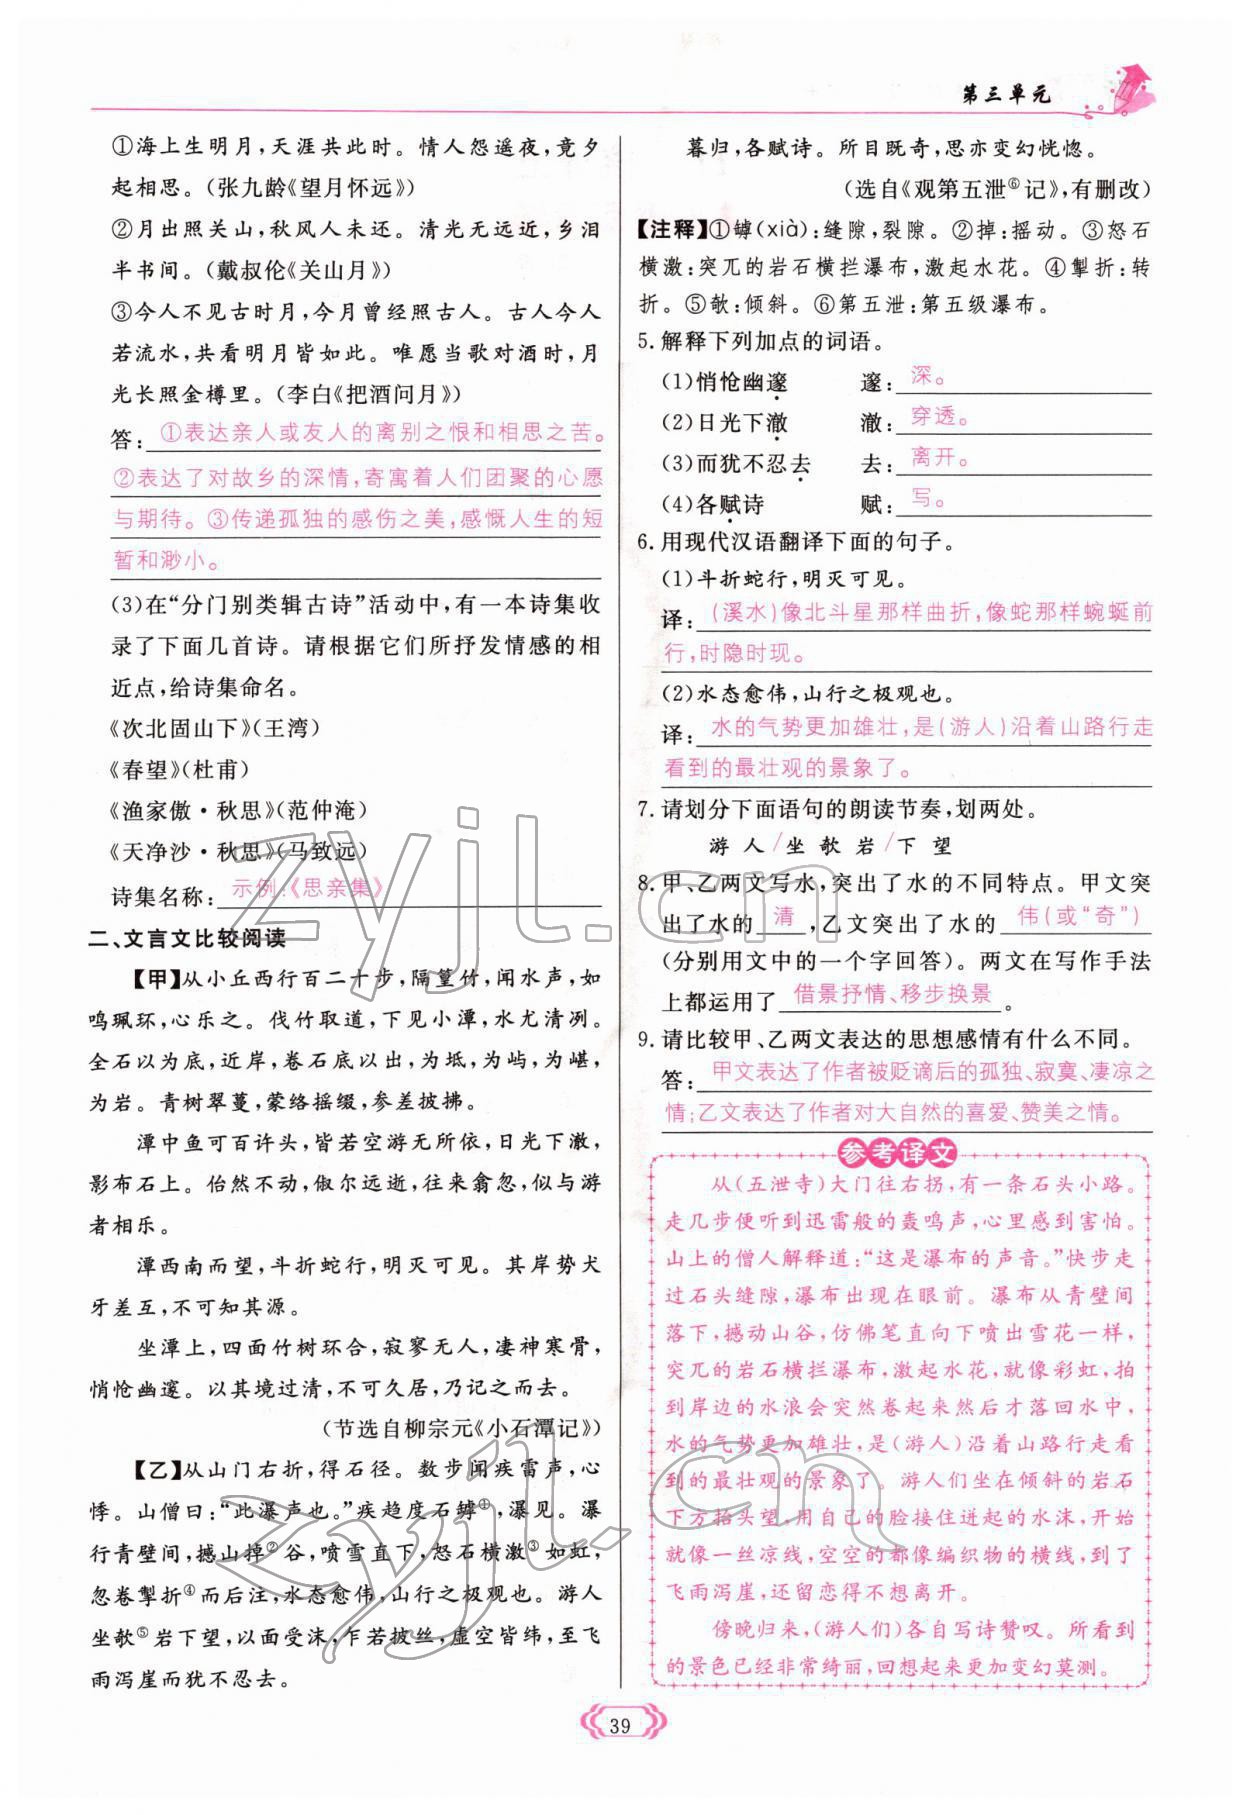 第三单元
①海上生明月，天涯共此时。情人怨遥夜，竟夕
起相思。(张九龄《望月怀远》)
②月出照关山，秋风人未还。清光无远近，乡泪
半书间。(戴叔伦《关山月》)
③今人不见古时月，今月曾经照古人。古人今人
若流水，共看明月皆如此。唯愿当歌对酒时，月
光长照金樽里。(李白《把酒问月》)
答：①表达亲人或友人的离别之恨和相思之苦。
②表达了对故乡的深情，寄寓着人们团聚的心愿
与期待。③传递孤独的感伤之美，感慨人生的短
暂和渺小。
(3)在“分门别类辑古诗”活动中，有一本诗集收
录了下面几首诗。请根据它们所抒发情感的相
近点，给诗集命名。
《次北固山下》(王湾)
《春望》(杜甫)
《渔家傲·秋思》(范仲淹)
《天净沙·秋思》(马致远)
诗集名称：示例：《思亲集》
二、文言文比较阅读
【甲】从小丘西行百二十步，隔篁竹，闻水声，如
鸣珮环，心乐之。伐竹取道，下见小潭，水尤清冽。
全石以为底，近岸，卷石底以出，为坻，为屿，为嵁，
为岩。青树翠蔓，蒙络摇缀，参差披拂。
潭中鱼可百许头，皆若空游无所依，日光下澈，
影布石上。佁然不动，俶尔远逝，往来翕忽，似与游
者相乐。
潭西南而望，斗折蛇行，明灭可见。其岸势犬
牙差互，不可知其源。
坐潭上，四面竹树环合，寂寥无人，凄神寒骨，
悄怆幽邃。以其境过清，不可久居，乃记之而去。
(节选自柳宗元《小石潭记》)
【乙】从山门右折，得石径。数步闻疾雷声，心
悸。山僧曰：“此瀑声也。”疾趋度石罅①，瀑见。瀑
行青壁间，撼山掉②谷，喷雪直下，怒石横激③如虹，
忽卷掣折④而后注，水态愈伟，山行之极观也。游人
坐欹⑤岩下望，以面受沫，乍若披丝，虚空皆纬，至飞
雨泻崖而犹不忍去。
暮归，各赋诗。所目既奇，思亦变幻恍惚。
(选自《观第五泄⑥记》，有删改)
【注释】①罅(xià)：缝隙，裂隙。②掉：摇动。③怒石
横激：突兀的岩石横拦瀑布，激起水花。④掣折：转
折。⑤欹：倾斜。⑥第五泄：第五级瀑布。
5.解释下列加点的词语。
(1)悄怆幽邃 邃：深。
(2)日光下澈 澈：穿透。
(3)而犹不忍去 去：离开。
(4)各赋诗 赋：写。
6.用现代汉语翻译下面的句子。
(1)斗折蛇行，明灭可见。
译：(溪水)像北斗星那样曲折，像蛇那样蜿蜒前
行，时隐时现。
(2)水态愈伟，山行之极观也。
译：水的气势更加雄壮，是(游人)沿着山路行走
看到的最壮观的景象了。
7.请划分下面语句的朗读节奏，划两处。
游人/坐欹岩/下望
8.甲、乙两文写水，突出了水的不同特点。甲文突
出了水的清，乙文突出了水的伟(或“奇”)
(分别用文中的一个字回答)。两文在写作手法
上都运用了借景抒情、移步换景。
9.请比较甲、乙两文表达的思想感情有什么不同。
答：甲文表达了作者被贬谪后的孤独、寂寞、凄凉之
情；乙文表达了作者对大自然的喜爱、赞美之情。
参考译文
从(五泄寺)大门往右拐，有一条石头小路。
走几步便听到迅雷般的轰鸣声，心里感到害怕。
山上的僧人解释道：“这是瀑布的声音。”快步走
过石头缝隙，瀑布出现在眼前。瀑布从青壁间
落下，撼动山谷，仿佛笔直向下喷出雪花一样，
突兀的岩石横拦瀑布，激起水花，就像彩虹，拍
到岸边的水浪会突然卷起来然后才落回水中，
水的气势更加雄壮，是(游人)沿着山路行走看
到的最壮观的景象了。游人们坐在倾斜的岩石
下方抬头望，用自己的脸接住迸起的水沫，开始
就像一丝凉线，空空的都像编织物的横线，到了
飞雨泻崖，还留恋得不想离开。
傍晚归来，(游人们)各自写诗赞叹。所看到
的景色已经非常绮丽，回想起来更加变幻莫测。
39
zyjl.cn
zyjl.cn